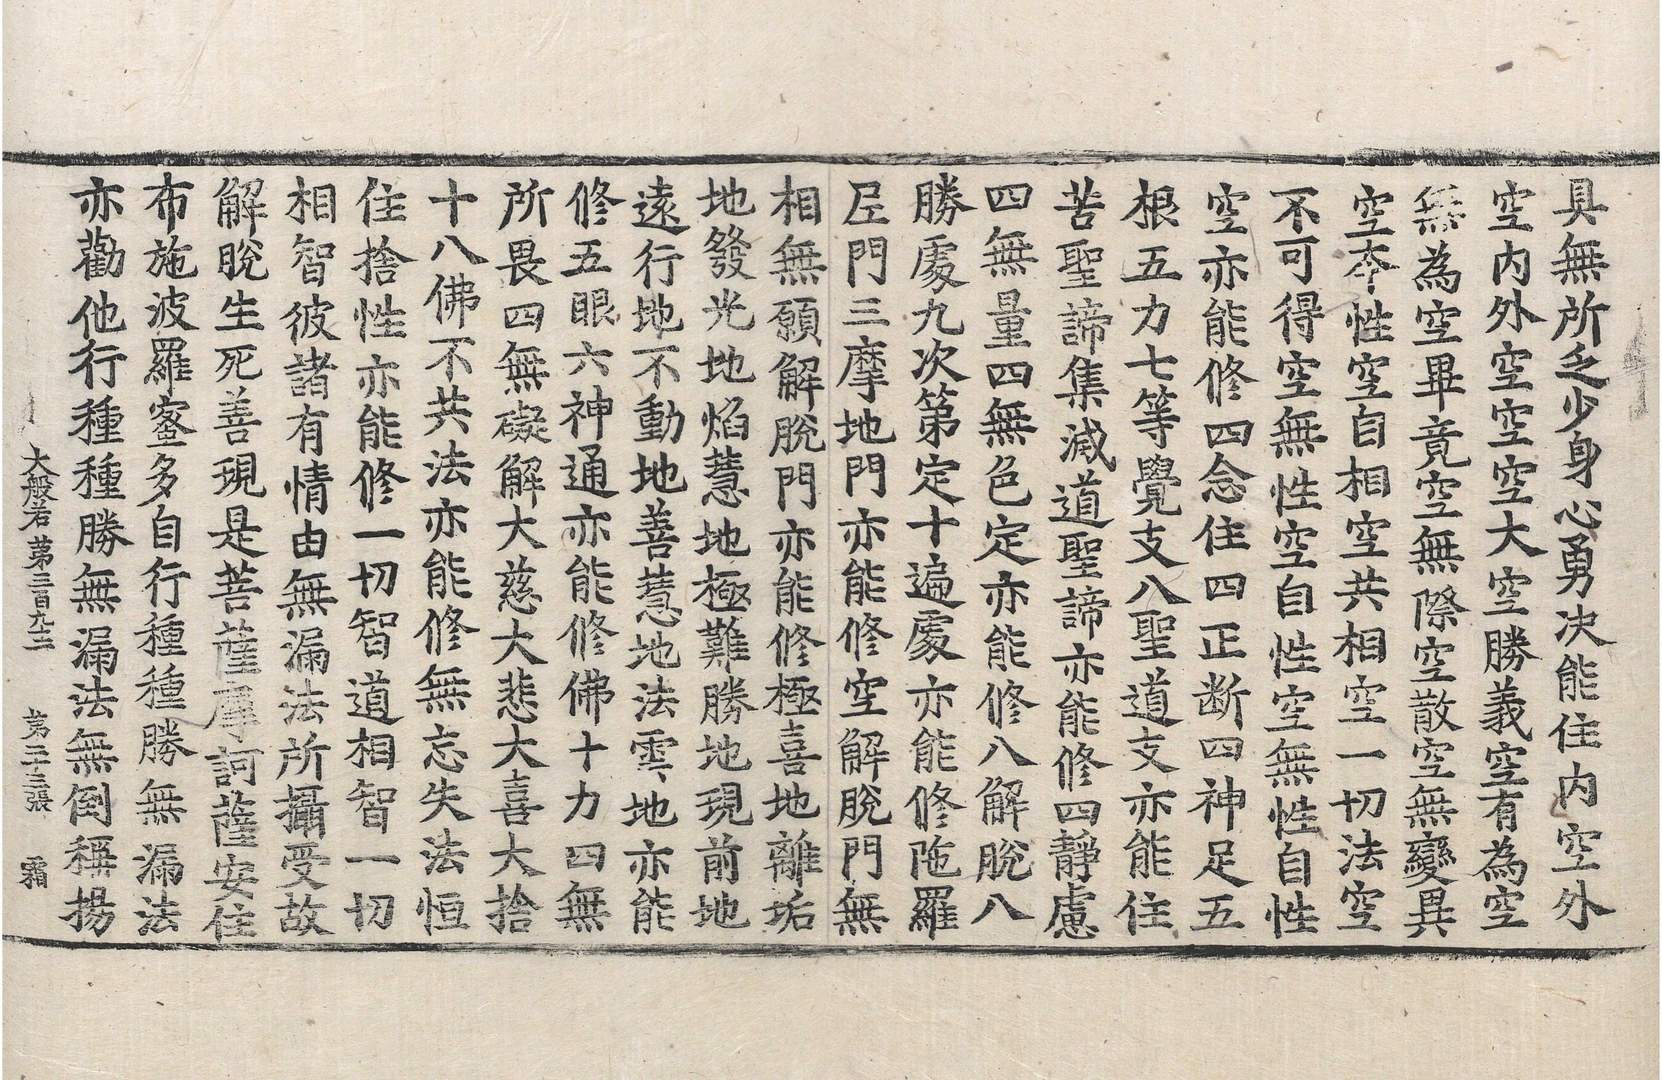 具無所乏少身心勇决能住内空外
空内外空空空大空勝義空有為空
無為空畢竟空無際空散空無變異
空夲性空自相空共相空一切法空
不可得空無性空自性空無性自性
空亦能修四念住四正断四神足五
根五力七等覺支八聖道支亦能住
苦聖諦集滅道聖諦亦能修四靜慮
四無量四無色定亦能修八解脫八
勝處九次第定十遍處亦能修陁羅
尼門三摩地門亦能修空解脫門無
相無願解脫門亦能修極喜地離垢
地發光地焰慧地極難勝地現前地
遠行地不動地善慧地法雲地亦能
修五眼六神通亦能修佛十力四無
所畏四無礙解大慈大悲大喜大捨
十八佛不共法亦能修無忘失法恒
住捨性亦能修一切智道相智一切
相智彼諸有情由無漏法所攝受故
解脫生死善現是菩薩摩訶薩安住
布施波羅蜜多自行種種勝無漏法
亦勸他行種種勝無漏法無倒稱揚
大般若第三百九十二 第二十三張 霜